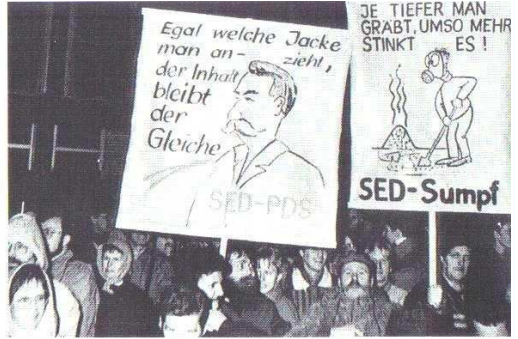 Egal welche Jacke
man an- zieht,
der Inhalt
bleibt
der
Gleiche
SED-PDS
JE TIEFER MAN
GRABT, UMSO MEHR
STINKT ES !
SED-Sumpf